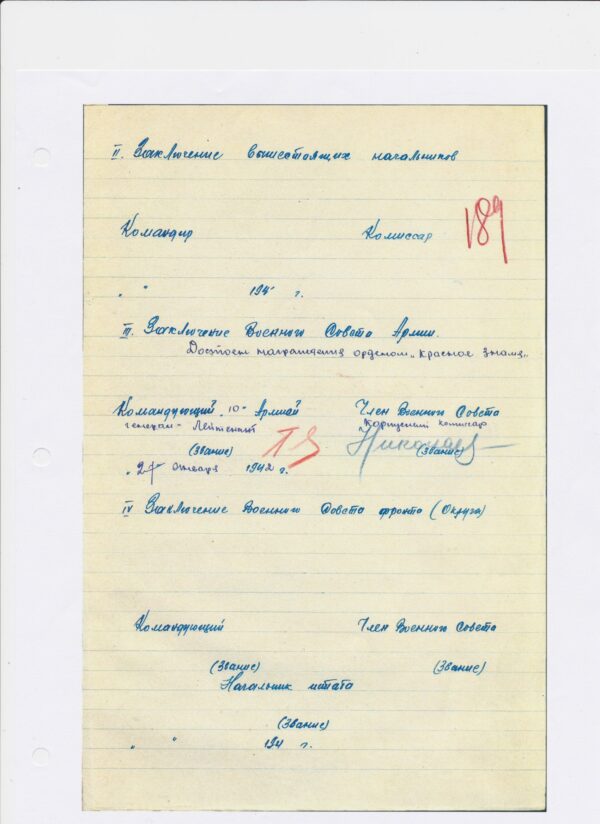 II. Заключение вышестоящих начальников
Командир Комиссар 189
" " 194 г.
III. Заключение Военного Совета Армии.
Достоен награждения орденом "Красное Знамя"
Командующий "10" Армией Член Военного Совета
генерал-лейтенант Корпусный комиссар
(звание) Николаев (звание)
"27 января 1942 г.
IV Заключение Военного Совета фронта (Округа)
Командующий Член Военного Совета
(звание) (звание)
Начальник штаба
(звание)
" " 194 г.